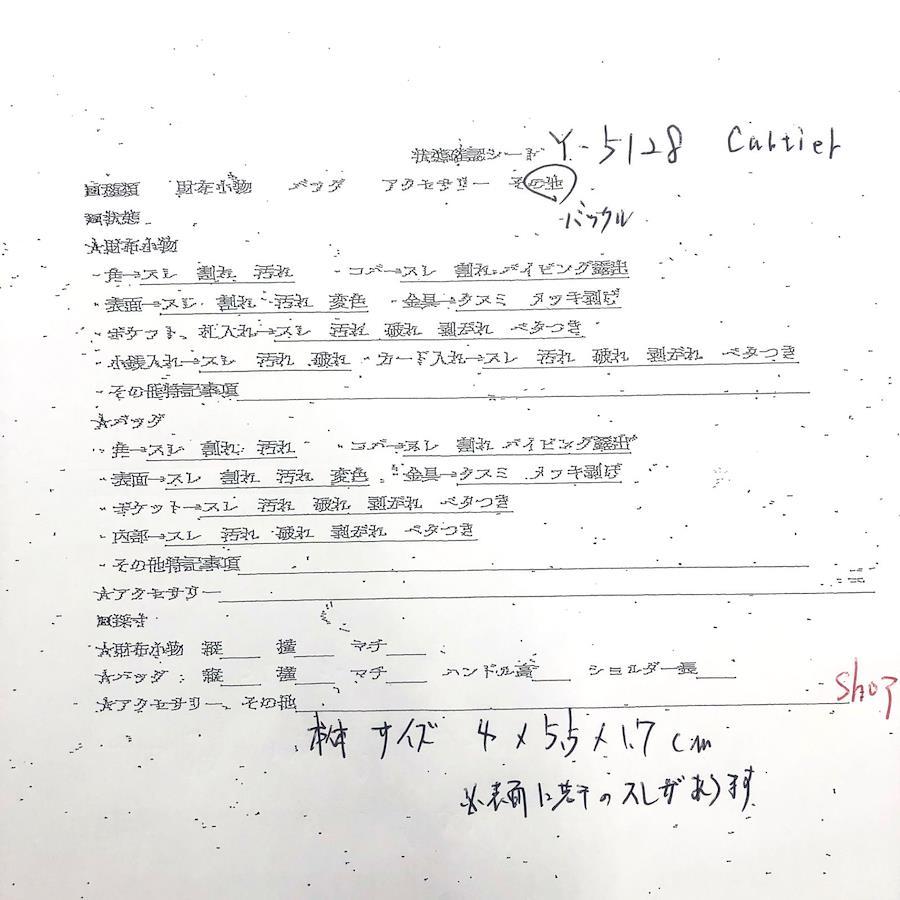 状態確認シート Y-5128 Cartier
■種類 財布小物 バッグ アクセサリー その他
バックル
■状態
★財布小物
・角→スレ 割れ 汚れ ・コバ→スレ 割れ パイピング露出
・表面→スレ 割れ 汚れ 変色 ・金具→クスミ メッキ剥げ
・ポケット、札入れ→スレ 汚れ 破れ 剥がれ ベタつき
・小銭入れ→スレ 汚れ 破れ ・カード入れ→スレ 汚れ 破れ 剥がれ ベタつき
・その他特記事項
★バッグ
・角→スレ 割れ 汚れ ・コバ→スレ 割れ パイピング露出
・表面→スレ 割れ 汚れ 変色 ・金具→クスミ メッキ剥げ
・ポケット→スレ 汚れ 破れ 剥がれ ベタつき
・内部→スレ 汚れ 破れ 剥がれ ベタつき
・その他特記事項
★アクセサリー
■採寸
★財布小物 縦 横 マチ
★バッグ: 縦 横 マチ ハンドル高 ショルダー長
★アクセサリー、その他
本体 サイズ 4×5.5×1.7cm
※表面に若干のスレがあります